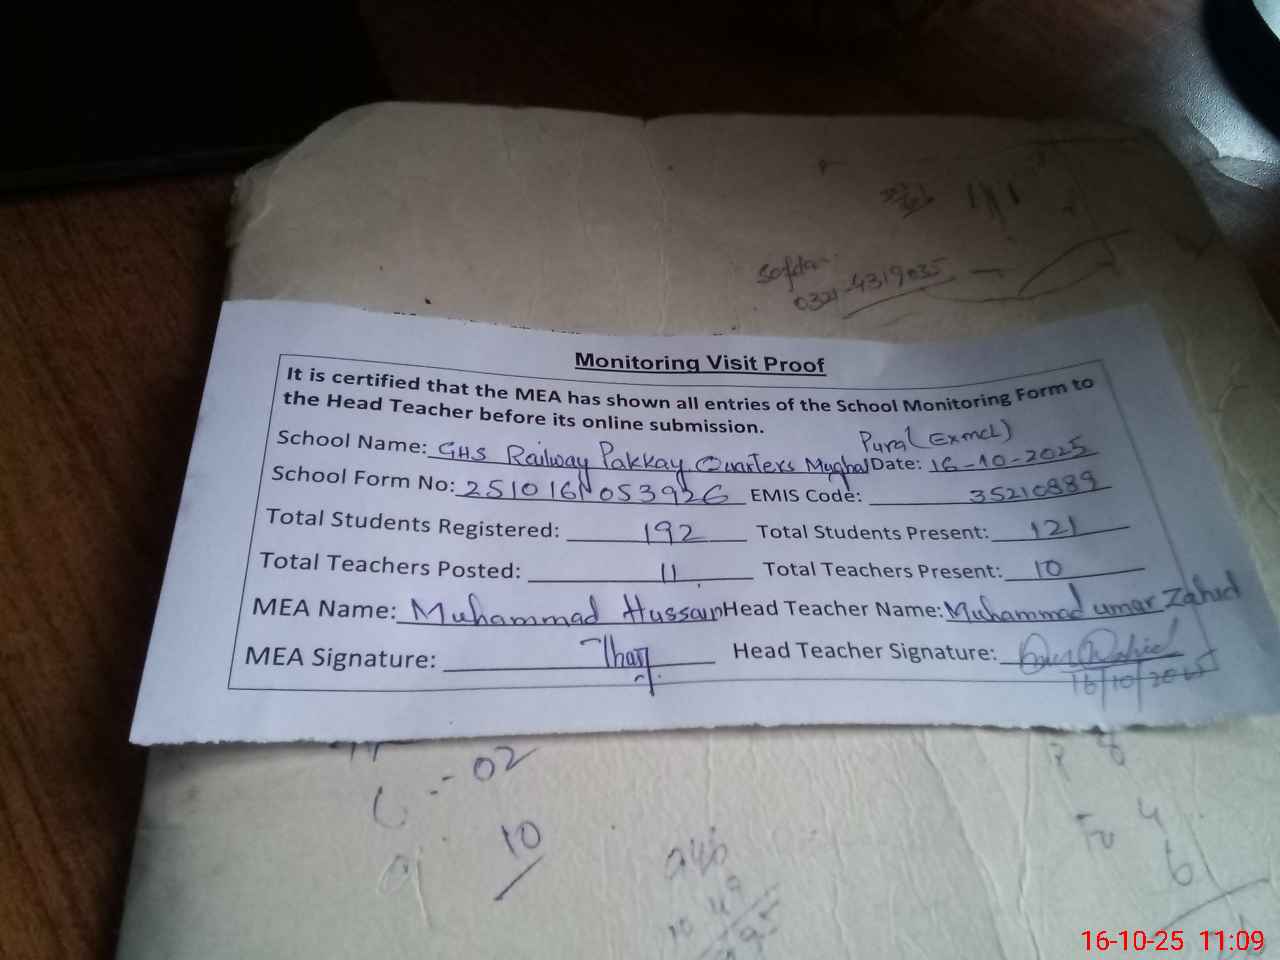 Sofda
0321-4319035
Monitoring Visit Proof
It is certified that the MEA has shown all entries of the School Monitoring Form to
the Head Teacher before its online submission.
School Name: GHS Railway Pakkay Quarters Mughal Pura (Exmcl) Date: 16-10-2025
School Form No: 251016N053926 EMIS Code: 35210889
Total Students Registered: 192 Total Students Present: 121
Total Teachers Posted: 11 Total Teachers Present: 10
MEA Name: Muhammad Hussain Head Teacher Name: Muhammad umar Zahid
MEA Signature: Head Teacher Signature:
16/10/2025
02
10
8
4
6
16-10-25 11:09